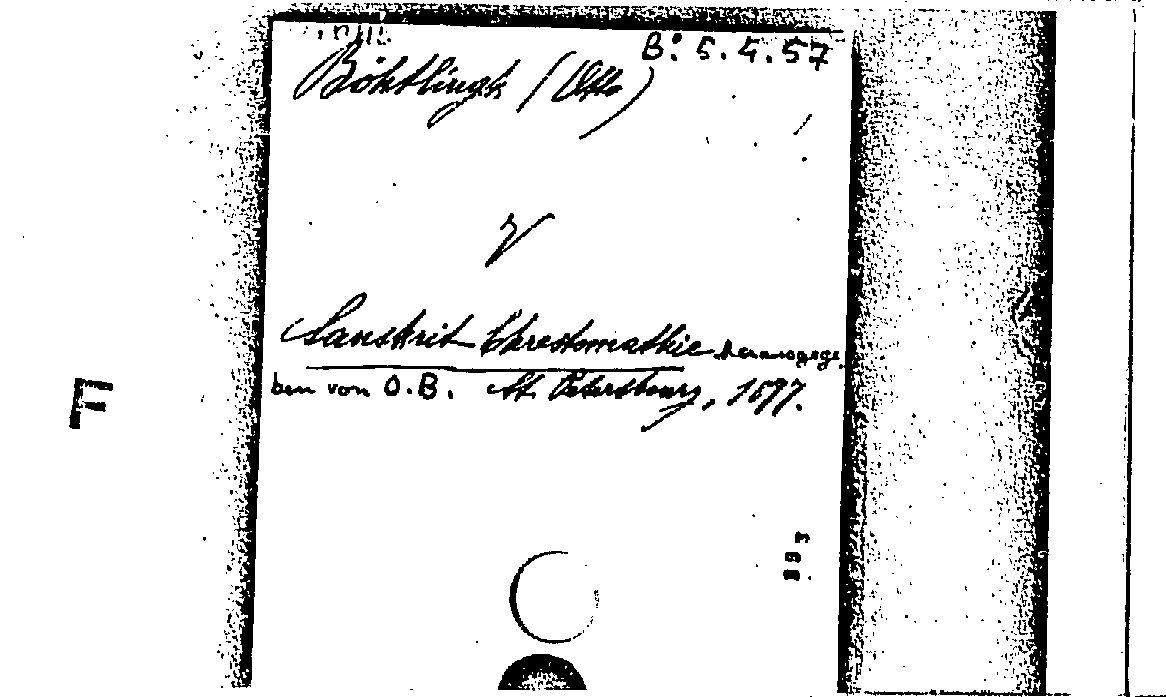 B: 5.4.57
Böhtlingk (Otto)
Sanskrit Chrestomathie herausgege
ben von O.B. St. Petersbourg, 1877.
F